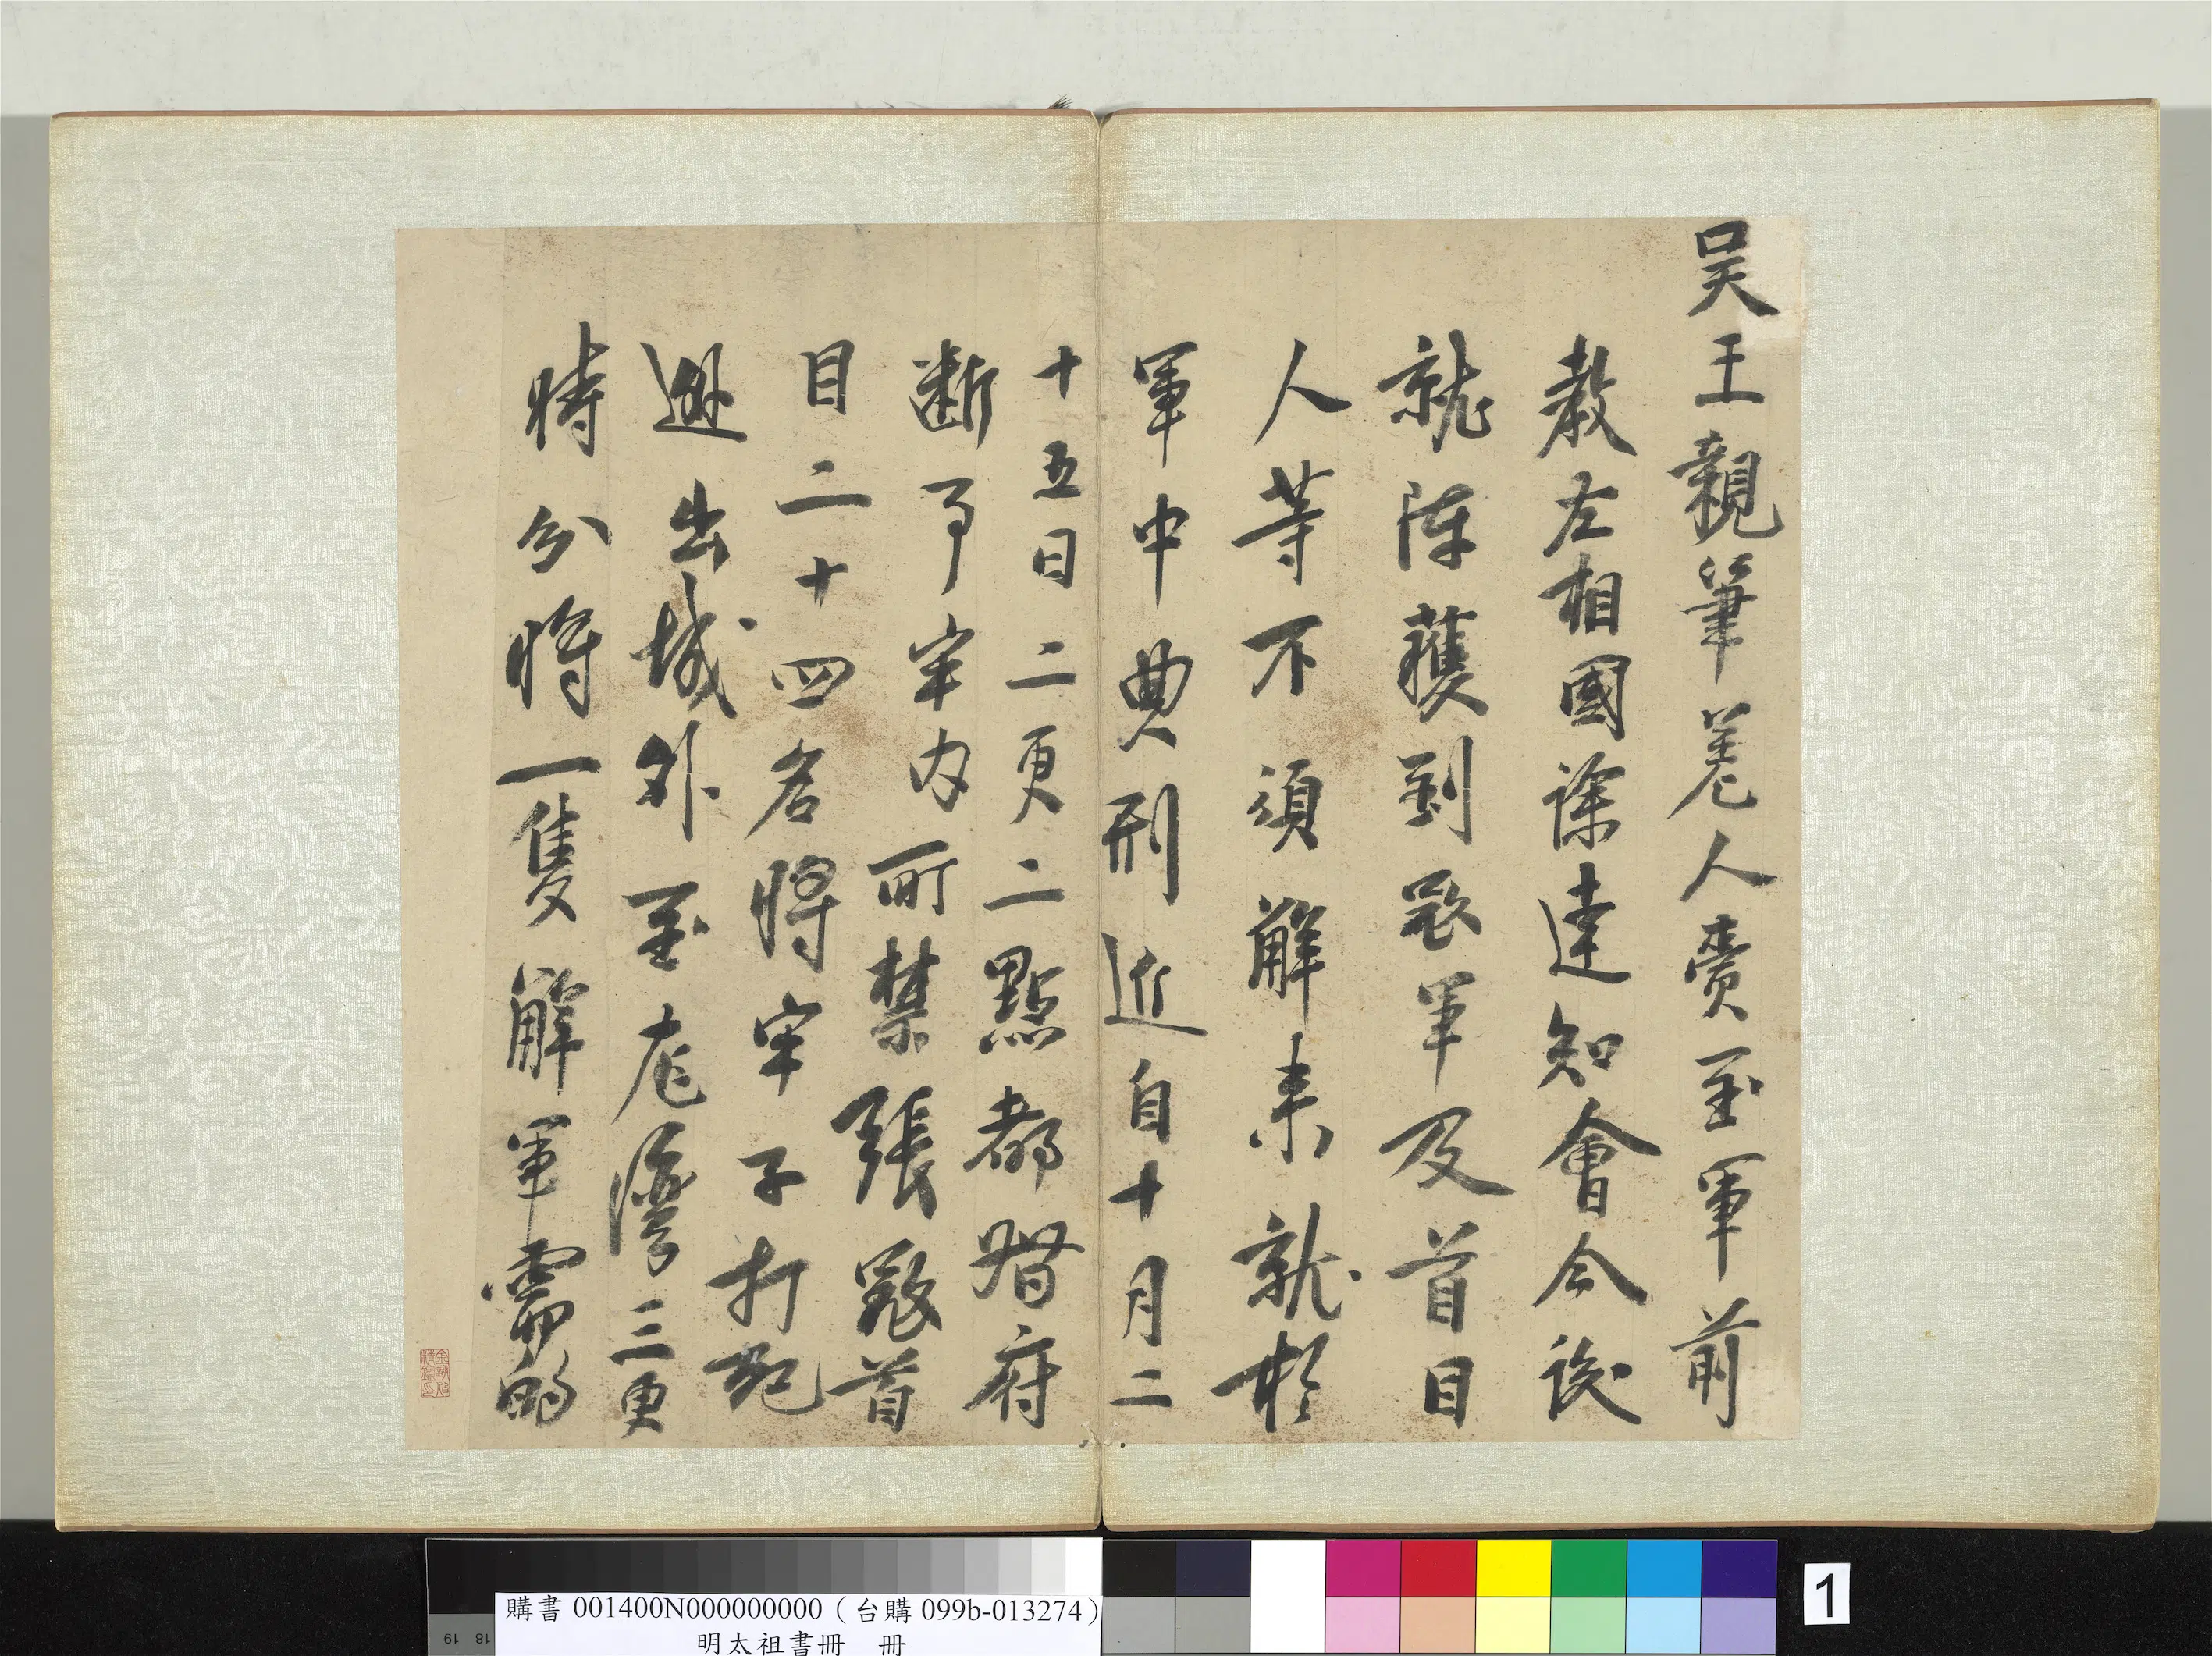 吳王親筆差人賫至軍前
教左相國徐達知會今後
就陣獲到寇軍及首目
人等不須解來就於
軍中典刑近自十月二
十五日二更二點都督府
斷事牢內所禁張寇首
目二十四名將牢子打死
逃出城外至龙灣三更
時分將一隻解軍需的
購書 001400N000000000（台購 099b-013274）
明太祖書冊 冊
1
19 18